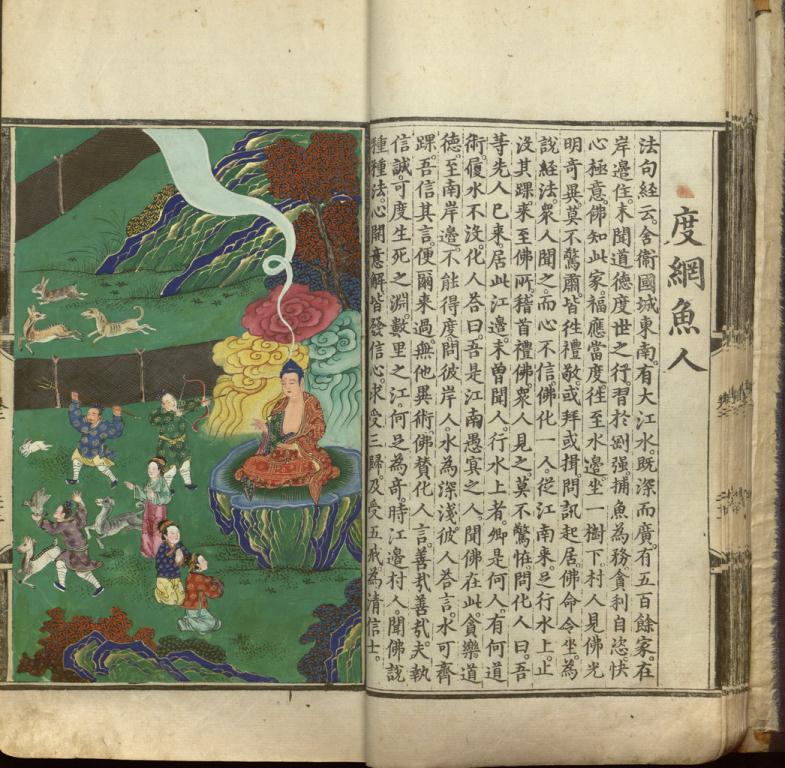 度網魚人
法句經云。舍衛國城東南。有大江水。既深而廣。有五百餘家。在
岸邊住。未聞道德度世之行。習於剛强。捕魚為務。貪利自恣。快
心極意。佛知此家福應當度。往至水邊。坐一樹下。村人見佛光
明奇異。莫不驚肅。皆往禮敬。或拜或揖。問訊起居。佛命令坐。為
說經法。眾人聞之。而心不信。佛化一人。從江南來。足行水上。止
沒其踝。來至佛所。稽首禮佛。眾人見之。莫不驚恠。問化人曰。吾
等先人已來。居此江邊。未曾聞人。行水上者。卿是何人。有何道
術。履水不沒。化人荅曰。吾是江南愚冥之人。聞佛在此。貪樂道
德。至南岸邊。不能得度。問彼岸人。水為深淺。彼人荅言。水可齊
踝。吾信其言。便爾來過。無他異術。佛賛化人言。善哉善哉。夫執
信誠。可度生死之淵。數里之江。何足為奇。時江邊村人。聞佛說
種種法。心開意解。皆發信心。求受三歸。及受五戒。為清信士。